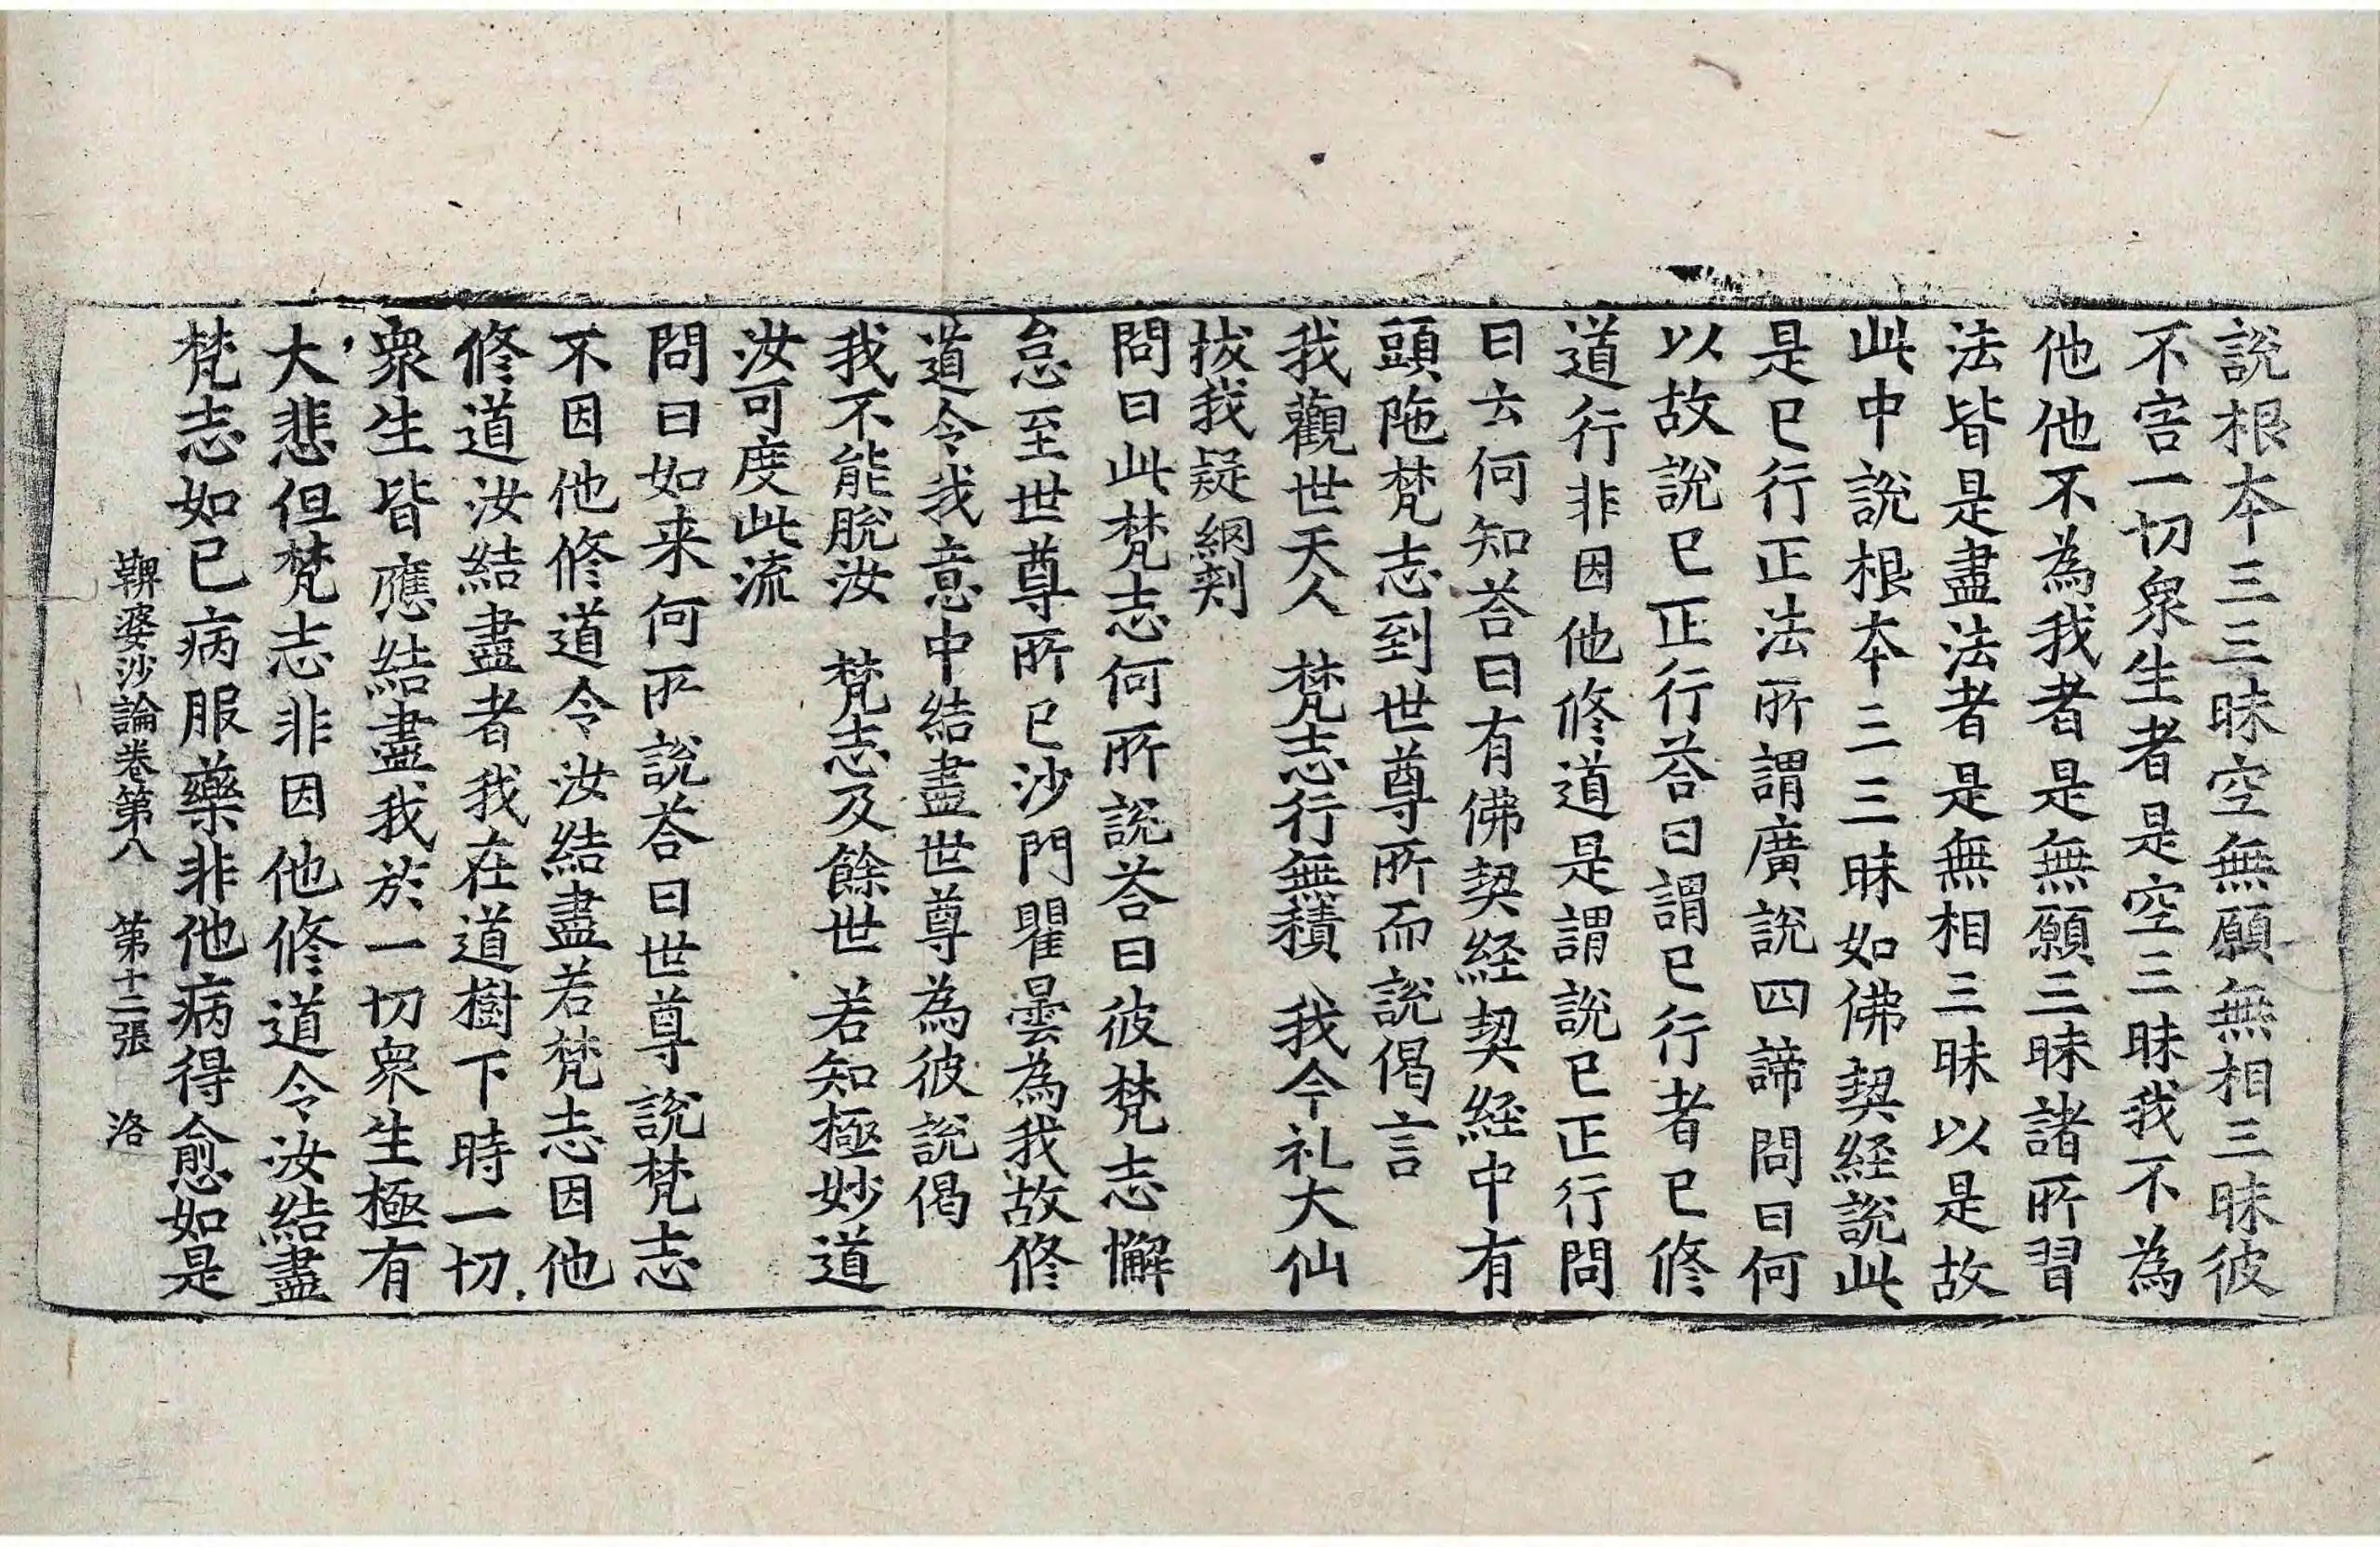 說根本三三昧空無願無相三昧彼
不害一切衆生者是空三昧我不為
他他不為我者是無願三昧諸所習
法皆是盡法者是無相三昧以是故
此中說根本三三昧如佛契経說此
是已行正法所謂廣說四諦問曰何
以故說已正行荅曰謂已行者已修
道行非因他修道是謂說已正行問
曰云何知荅曰有佛契経契経中有
頭陁梵志到世尊所而說偈言
我觀世天人　梵志行無積　我今礼大仙
拔我疑網刾
問曰此梵志何所說荅曰彼梵志懈
怠至世尊所已沙門瞿曇為我故修
道令我意中結盡世尊為彼說偈
我不能脫汝　梵志及餘世　若知極妙道
汝可度此流
問曰如来何所說荅曰世尊說梵志
不因他修道令汝結盡若梵志因他
修道汝結盡者我在道樹下時一切
衆生皆應結盡我於一切衆生極有
大悲但梵志非因他修道令汝結盡
梵志如已病服藥非他病得愈如是
鞞婆沙論卷第八　第十二張　洛